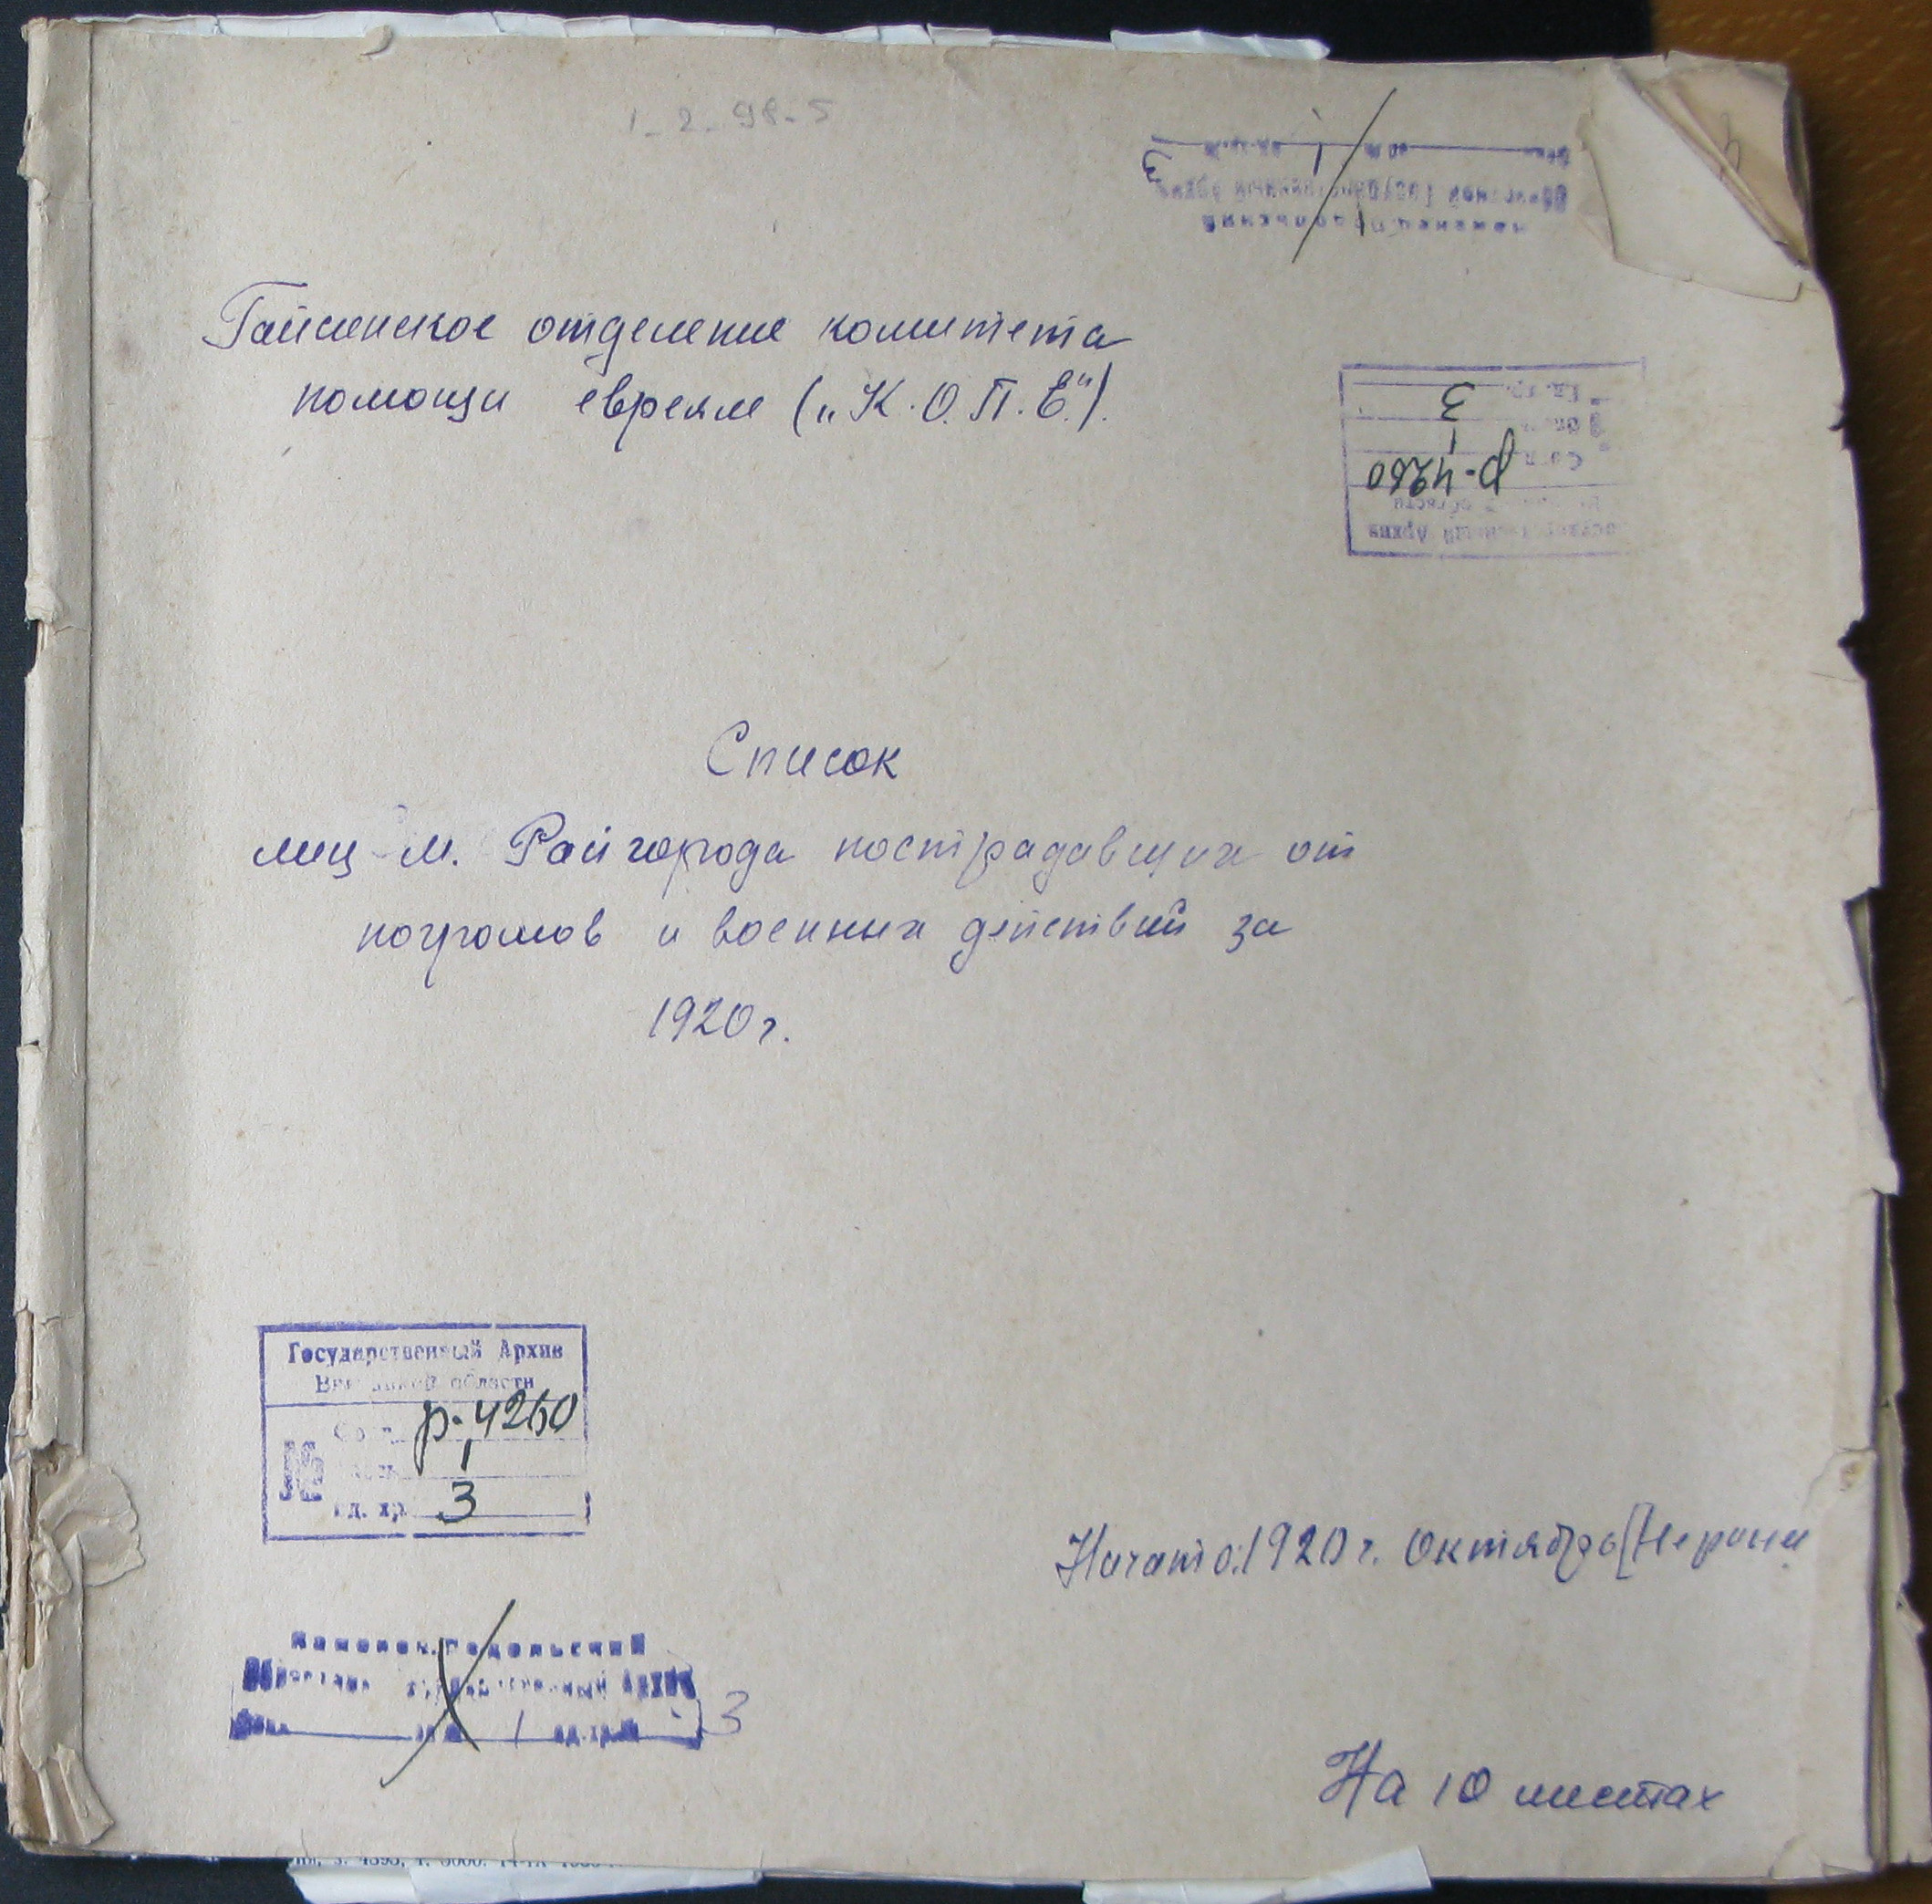 1-2-98-5
Гайсинское отделение комитета
помощи евреям („К.О.П.Е.")
3
1
р-4260
Список
лиц м. Райгорода пострадавших от
погромов и военных действий за
1920г.
Государственный Архив
области
№
р-4260
1
Ед. хр. 3
Начато: 1920г. октябрь
Каменец-Подольский
Архив
1 ед.хр.№ 3
На 10 листах